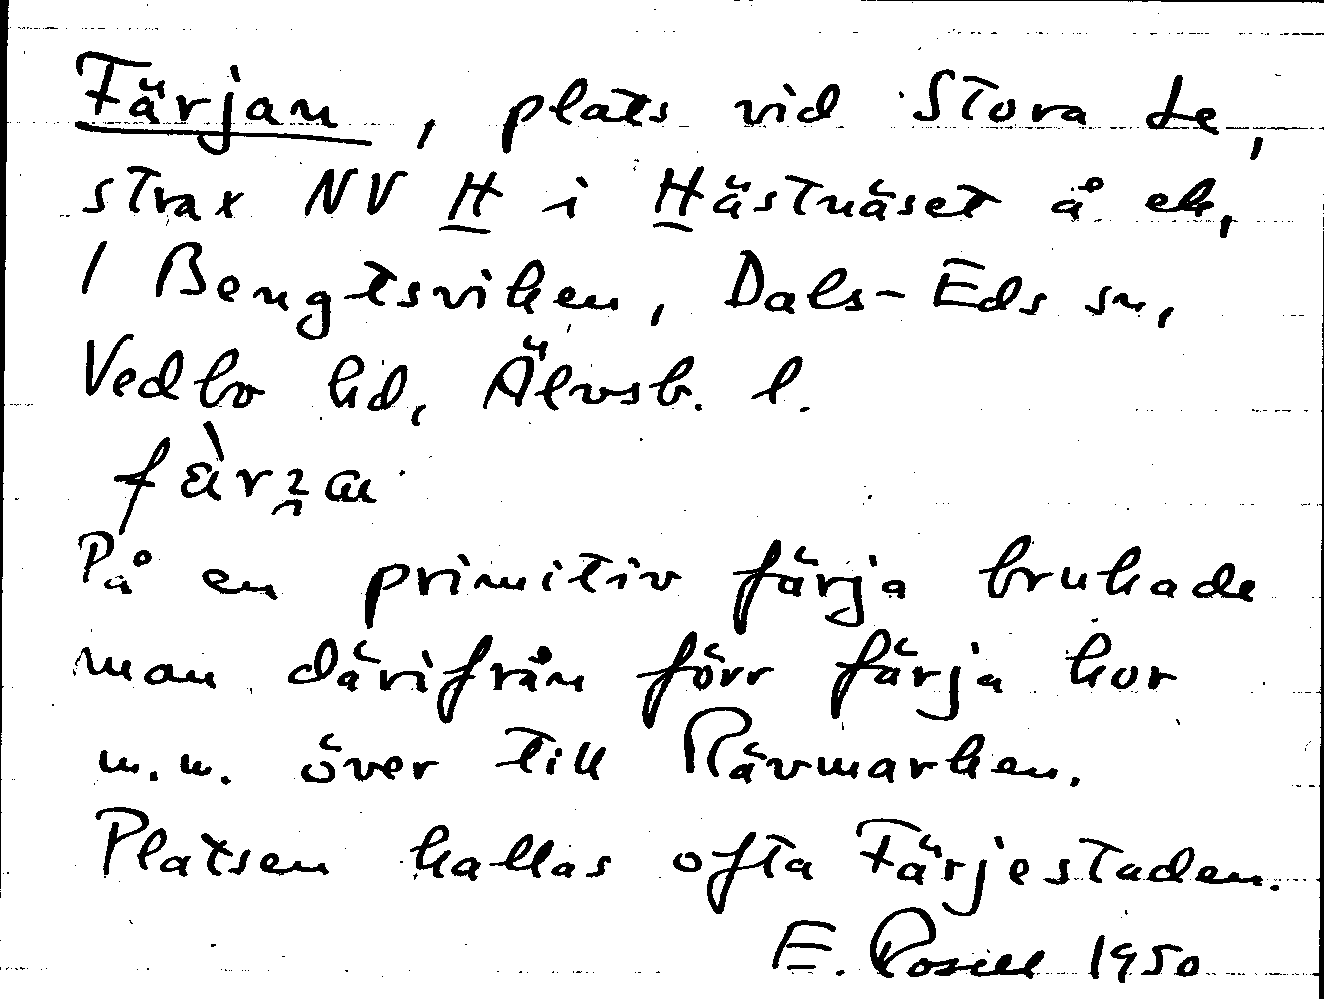 Färjan, plats vid Stora Le,
strax NV H i Hästnäset å ek,
/ Bengtsviken, Dals-Eds sn,
Vedbo hd, Älvsb. l.
På en primitiv färja brukade
man därifrån förr färja kor
m.m. över till Rävmarken.
Platsen kallas ofta Färjestaden.
E. Rosell 1950